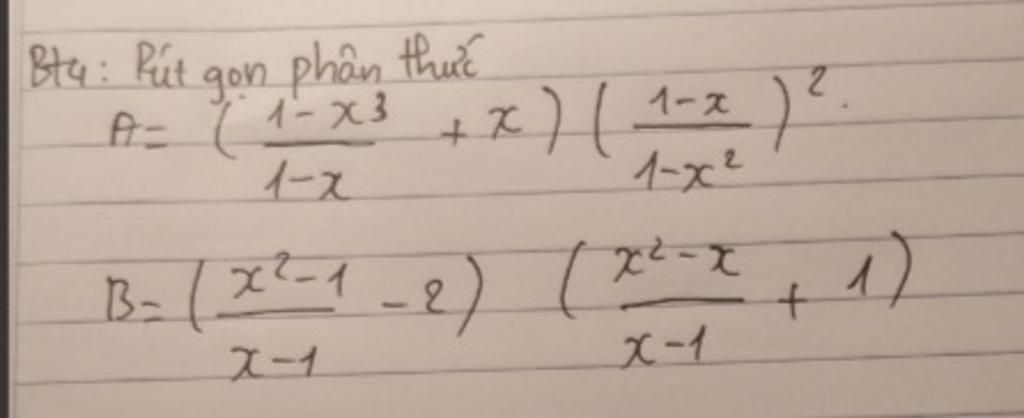 Bt4: Rút gọn phân thức
A = ( \frac{1-x^3}{1-x} + x ) ( \frac{1-x}{1-x^2} )^2.
B = ( \frac{x^2-1}{x-1} - 2 ) ( \frac{x^2-x}{x-1} + 1 )